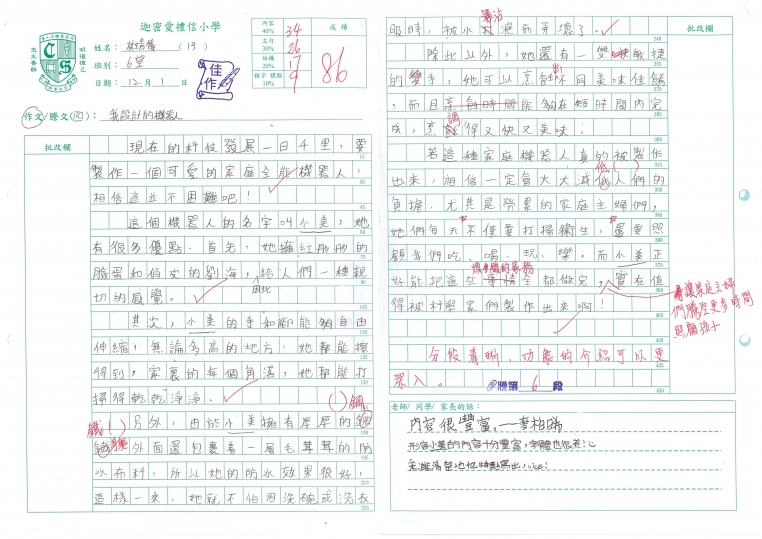 迦密愛禮信小學
姓名：
(13)
班別：6望
日期：12月1日
佳作
內容 40% 34
文句 30% 26
結構 20% 17
錯字 標點 10% 9
成績
86
作文/謄文(四)：我設計的機器人
批改欄
現在的科技發展一日千里，要
製作一個可愛的家庭全能機器人，
相信這並不困難吧！
這個機器人的名字叫小美，她
有很多優點。首先，她擁紅彤彤的
臉蛋和俏皮的劉海，給人們一種親
切的感覺。
其次，小美的手和腳能夠自由
伸縮，無論多高的地方，她都能擦
得到，家裏的每個角落，她都能打
掃得乾乾淨淨。
( )鋼
鐵( )另外，由於小美擁有厚厚的鋼
外面還包裹着一層毛茸茸的防
水布料，所以她的防水效果很好，
這樣一來，她就不怕因洗碗或洗衣
沾
服時，被水濕而弄壞了。
除此以外，她還有一雙敏捷
的雙手，她可以烹不同美味佳餚
，而且能夠在短時間內完
調
成，烹得又快又美味！
若這種家庭機器人真的被製作
低( )
出來，相信一定會大大減低人們的
負擔，尤其是勞累的家庭主婦們，
她們每天不僅要打掃衞生，還要照
顧我們吃、喝、玩、樂。而小美正
煩瑣的家務
好能把這些事情全都做完，實在值
得被科學家們製作出來啊！
讓家庭主婦
們騰空更多時間
照顧孩子
分段清晰，功能的介紹可以更
深入。
謄第6段
批改欄
老師/同學/家長的話：
內容很豐富。——李柏晞
形容小美的內容十分豐富，字體也很美！